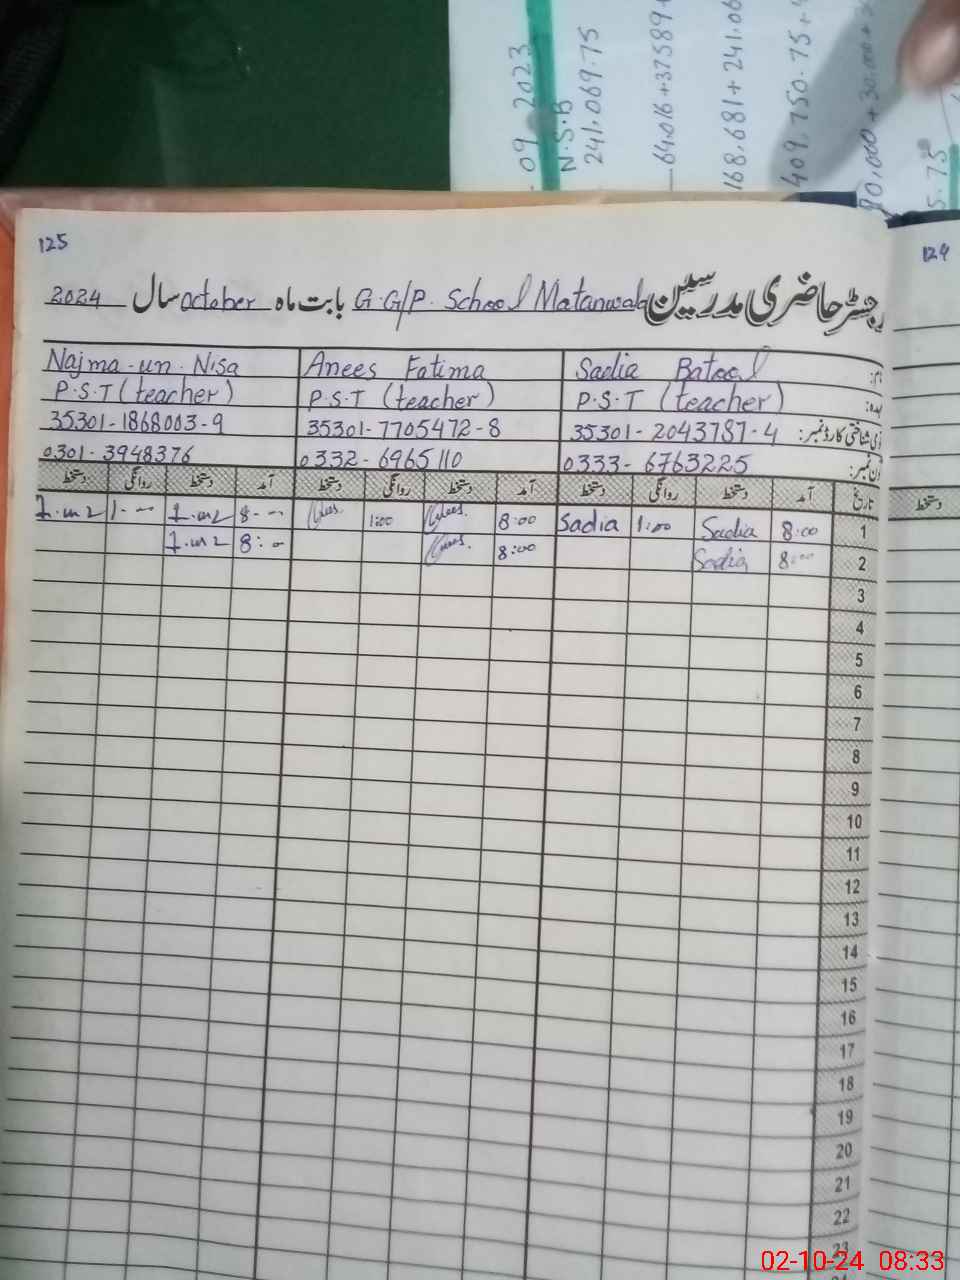 09 2023
N.S.B
241,069.75
64,016+37589+
168.681+241.06
409.750.75+
90,000+30,000+
5.75
125
124
رجسٹر حاضری مدرسین G.G/P. School Matanwala بابت ماہ october سال 2024
Sadia Batool Anees Fatima Najma-un-Nisa
P.S.T (teacher) P.S.T (teacher) P.S.T (teacher)
شناختی کارڈ نمبر: 35301-2043787-4 35301-7705472-8 35301-1868003-9
فون نمبر: 0333-6763225 0332-6965110 0301-3948376
تاریخ آمد دستخط روانگی دستخط آمد دستخط روانگی دستخط آمد دستخط روانگی دستخط
دستخط
1 8:00 Sadia 1:00 Sadia 8:00 1:00 8-00 1-00
2 8:00 Sadia 8:00 8:0
3
4
5
6
7
8
9
10
11
12
13
14
15
16
17
18
19
20
21
22
23
02-10-24 08:33